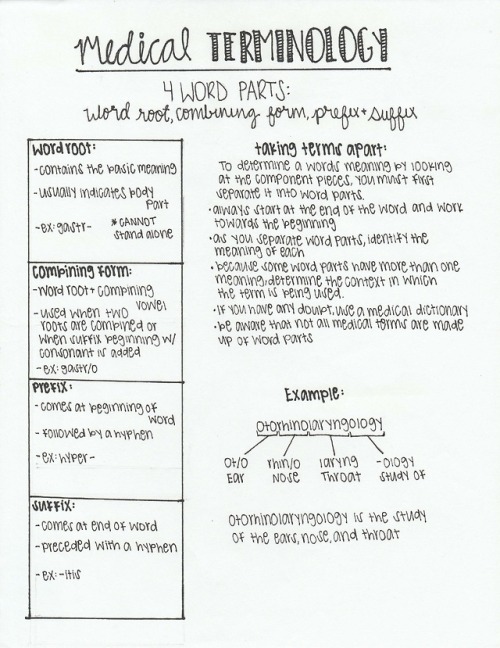 Medical TERMINOLOGY
4 WORD PARTS:
word root, combining form, prefix + suffix
word root:
-contains the basic meaning
-usually indicates body
part
-ex: gastr-
*CANNOT
stand alone
Combining Form:
-word root + combining
vowel
-used when two
roots are combined or
when suffix beginning w/
consonant is added
-ex: gastr/o
Prefix:
-comes at beginning of
word
-followed by a hyphen
-ex: hyper-
Suffix:
-comes at end of word
-preceded with a hyphen
-ex: -itis
taking terms apart:
To determine a words meaning by looking
at the component pieces, you must first
separate it into word parts.
•always start at the end of the word and work
towards the beginning
•as you separate word parts, identify the
meaning of each
•because some word parts have more than one
meaning, determine the context in which
the term is being used.
•if you have any doubt, use a medical dictionary
•be aware that not all medical terms are made
up of word parts
Example:
otorhinolaryngology
ot/o rhin/o laryng -ology
Ear Nose Throat Study of
otorhinolaryngology is the study
of the ears, nose, and throat